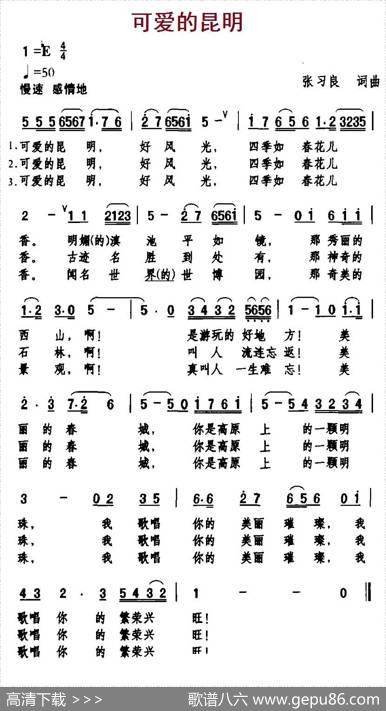 可爱的昆明
1=E 4/4
♩=50
慢速 感情地
张习良 词曲
5 5 5 6567 1·7 6 | 2 7 6561 5 - ∨ | 1 7 6 5 6 1·3 3235 |
1.可爱的昆 明, 好 风 光, 四季如 春花儿
2.可爱的昆 明, 好 风 光, 四季如 春花儿
3.可爱的昆 明, 好 风 光, 四季如 春花儿
2 - ∨ 1 1 2123 | 5 - 5 7 6561 | 5 - 0 1 6 1 1 |
香。 明媚(的)滇 池 平 如 镜, 那 秀丽的
香。 古迹 名 胜 到 处 有, 那 神奇的
香。 闻名 世 界(的) 世 博 园, 那 奇美的
1·2 3·0 5 - | 5·0 3 4 3 2 5656 | 1 - 1 0 1 0 1 |
西 山, 啊! 是游玩的 好地 方! 美
石 林, 啊! 叫 人 流连忘 返! 美
景 观, 啊! 真叫人 一生难 忘! 美
2 · 3 7·2 6 | 5 - 5 0 1 7 6 1 | 5 - 5 4 3 2 3 4 |
丽 的 春 城, 你是高原 上 的一颗明
丽 的 春 城, 你是高原 上 的一颗明
丽 的 春 城, 你是高原 上 的一颗明
3 - 0 2 3 5 | 6·6 2 7 6 5 6 0 1 |
珠, 我 歌唱 你的 美丽 璀 璨, 我
珠, 我 歌唱 你的 美丽 璀 璨, 我
珠, 我 歌唱 你的 美丽 璀 璨, 我
4 3 2 · 3 5 4 3 2 | 1 - - 0 ‖
歌唱 你 的 繁荣兴 旺!
歌唱 你 的 繁荣兴 旺!
歌唱 你 的 繁荣兴 旺!
高清下载 >>> 歌谱八六 www.gepu86.com